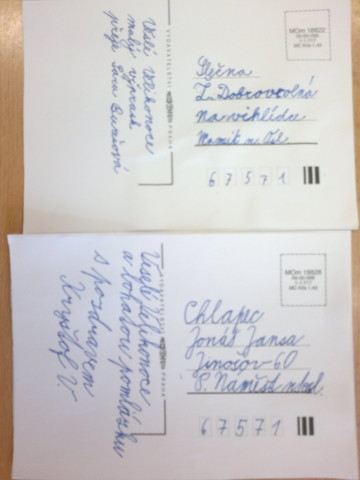 Veselé Velikonoce
malý výprask
přeje Sara Burešová
VYDAVATELSTVÍ
PRAHA
MOm 18822
Slečna
Z. Dobrovolná
na vihlídce
Namět n. Osl.
67571
Veselé velikonoce
a bohatou pomlázku
s pozdravem
Kryštof V
VYDAVATELSTVÍ
PRAHA
MOm 18826
Chlapec
Jonáš Jansa
Jinošov-60
P. Naměšť n. Osl.
67571